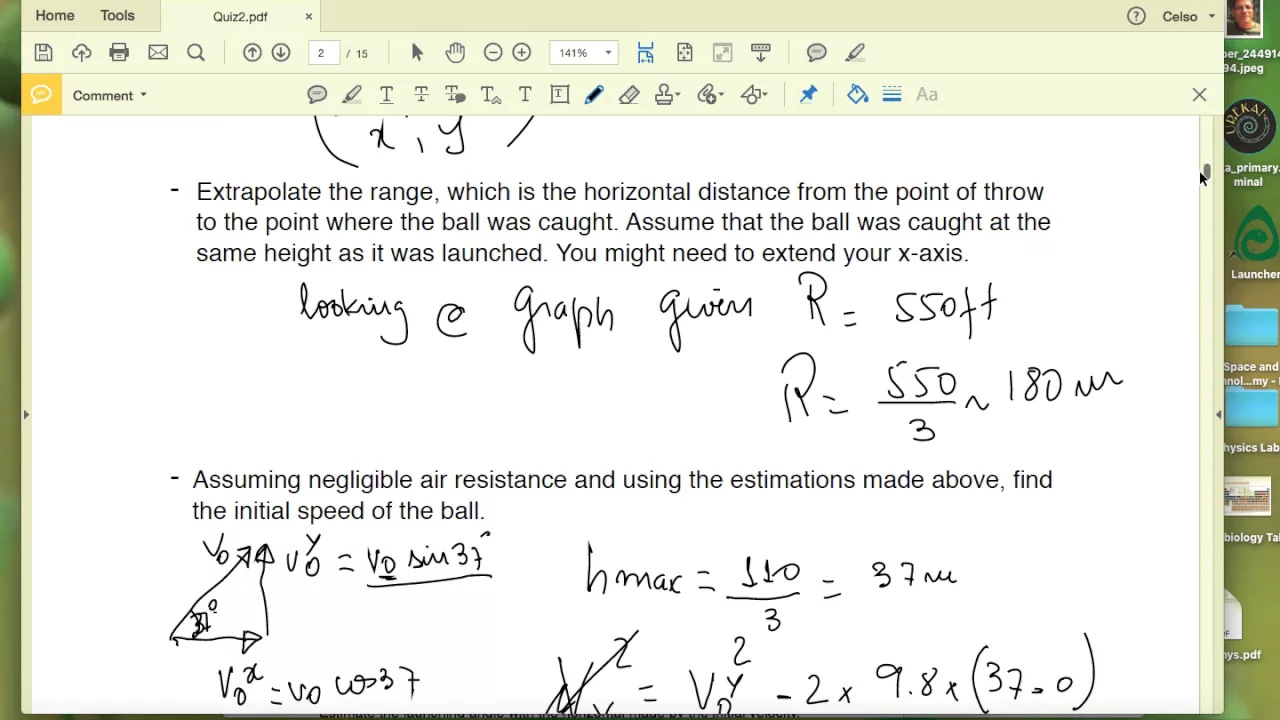 Home Tools Quiz2.pdf × Celso
2 / 15 141%
Comment Aa
x , y
- Extrapolate the range, which is the horizontal distance from the point of throw
to the point where the ball was caught. Assume that the ball was caught at the
same height as it was launched. You might need to extend your x-axis.
looking @ graph given R = 550ft
R = 550/3 ~ 180 m
- Assuming negligible air resistance and using the estimations made above, find
the initial speed of the ball.
V0 V0y = v0 sin37°
37°
hmax = 110/3 = 37m
V0x = v0 cos37
= V0y² - 2 × 9.8 × (37-0)
Estimate the launching angle with the horizontal made by the initial velocity.
per_244914
94.jpeg
UREKA!
ka_primary.
minal
Launcher
Space and
hnol...my -
Physics Lab
biology Tal
hys.pdf